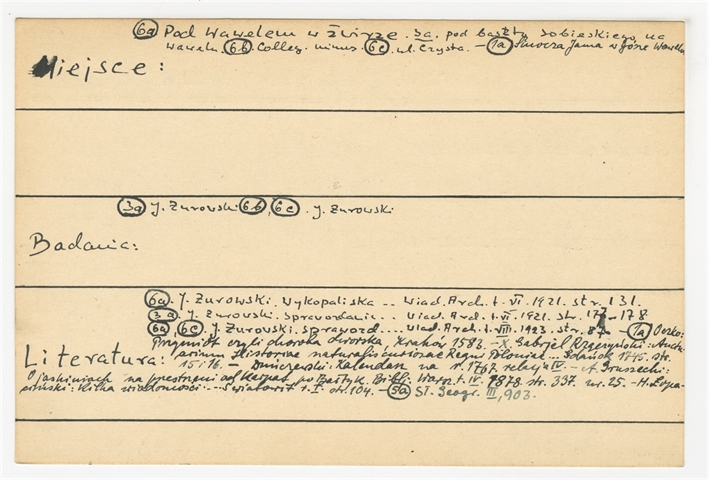 6a Pod Wawelem w żwirze. 3a. pod basztą Sobieskiego na
Wawelu. 6b. Colleg. minus. 6c. ul. Czysta. — 1a Smocza Jama w górze Wawelu
Miejsce:
3a J. Żurowski 6b, 6c. J. Żurowski
Badania:
6a. J. Żurowski. Wykopaliska .. Wiad. Arch. t. VI. 1921. str. 131.
3a J. Żurowski. Sprawozdanie .. Wiad. Arch. t. VI. 1921. str. 177-178
6a, 6c. J. Żurowski. Sprawozd.... Wiad. Arch. t. VIII. 1923. str. — 1a Oczko:
Przymiot czyli dworska, Kraków 1583. — X. Gabrjel Rzączyński: Auctu-
Literatura: arium Historiae naturalis curiosae Regni Poloniae... Gdańsk 1745. str.
15 i 16. — Duńczewski: Kalendarz na r. 1767 relacja IV. — A. Gruszecki:
O jaskiniach na przestrzeni od Karpat po Bałtyk. Bibl. Warsz. t. IV. 1878. str. 337. nr. 25. — H. Łopa-
ciński: Kilka wiadomości... Światowit t. I. str. 104. — 3a Sł. Geogr. III, 903.